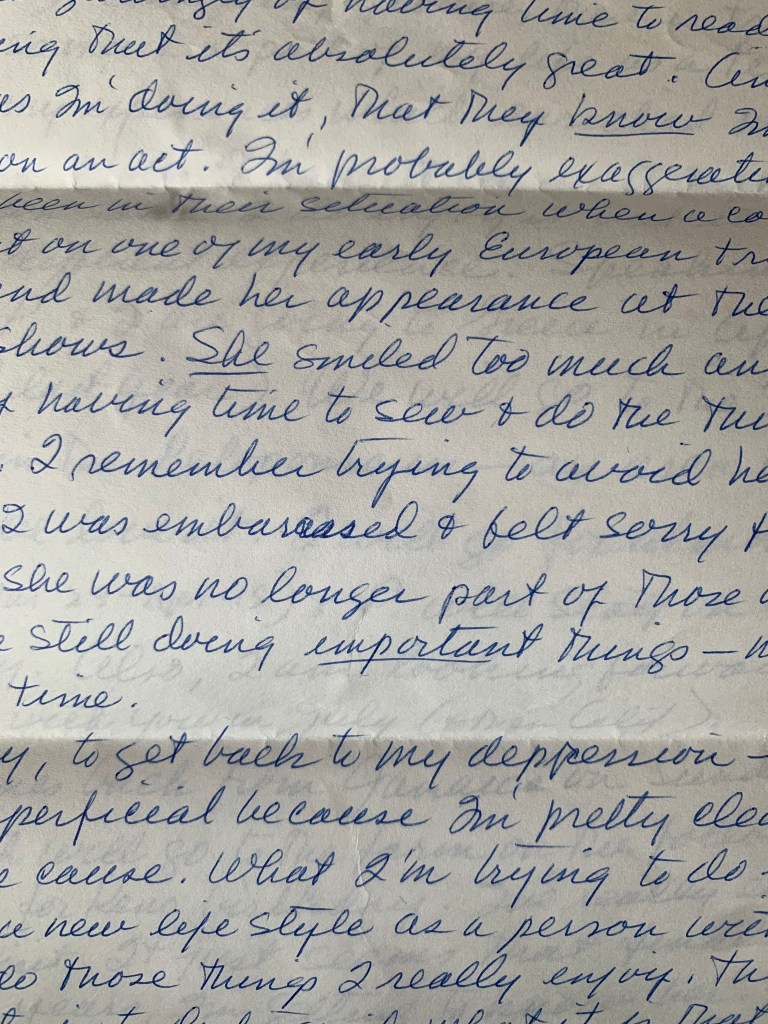 of having time to read
ing that it's absolutely great. An
as I'm doing it, that they know I'm
on an act. I'm probably exaggerati
been in their situation when a co
t on one of my early European tr
end made her appearance at the
shows. She smiled too much an
having time to sew & do the thi
. I remember trying to avoid he
I was embarrassed & felt sorry
she was no longer part of those
e still doing important things —
time.
y, to get back to my depression —
perficial because I'm pretty clea
e cause. What I'm trying to do
new life style as a person wit
do those things I really enjoy. Th
what it is that